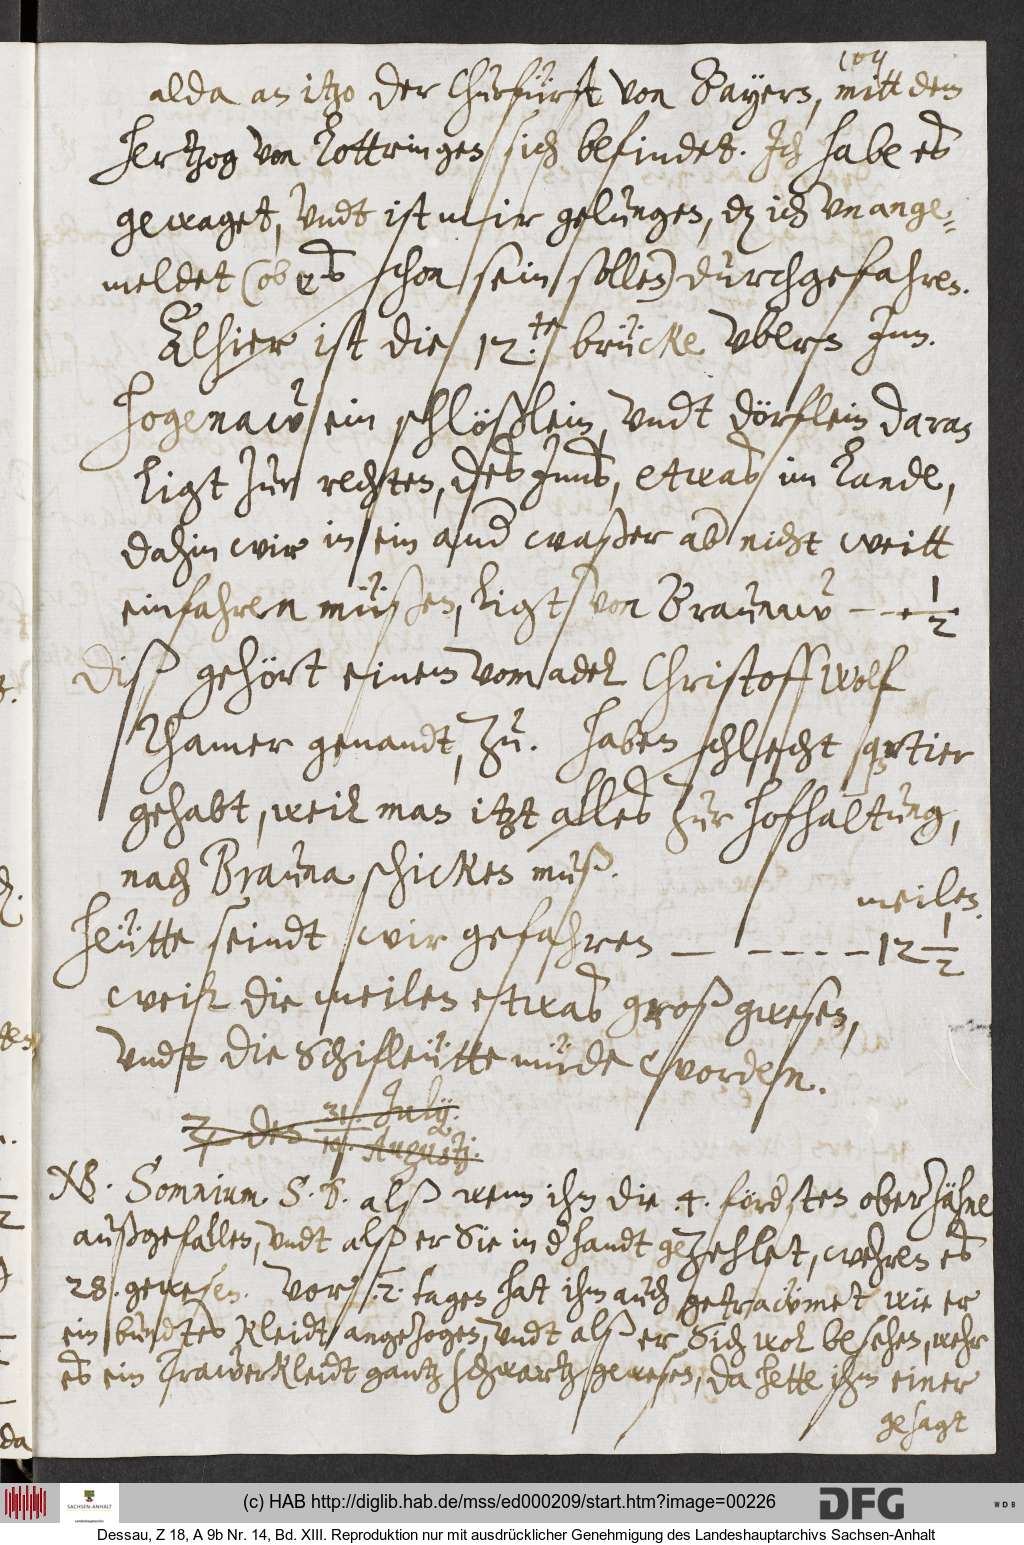 104
alda an itzo der Churfürst von Bayern, mitt dem
Hertzog von Lottringen sich befindet. Ich habe es
gewaget, undt ist mir gelungen, dz ich vnange-
meldet (ob es schon sein sollen) durchgefahren.
Alhier ist die 12.te brücke vbern Jnn.
Hogenaw ein schlößlein, vndt dörflein daran
ligt zur rechten, des Jnns, etwas im Lande,
dahin wir in ein and waßer ab nicht weitt
einfahren müßen, ligt von Braunaw — — 1/2
Diß gehört einem vom adel Christoff Wolf
Thamer genandt, zu. Haben schlecht qrtier
gehabt, weil man itzt alles zur hofhaltung,
nach Brauna schicken muß.
meilen.
Heütte seindt wir gefahren — — — — — 12 1/2
weil die meilen etwas groß gwesen,
vndt die Schifleütte müde worden.
den 31. July. / 10. Augustj.
NB. Somnium. S. S. alß wenn ihm die 4. förd sten ober Zähne
außgefallen, vndt alß er Sie in d handt gezehlet, wehren es
28. gewesen. Vor 2. tagen hat ihm auch getraümet wie er
ein bundtes Kleidt angezogen, vndt alß er Sich wol besehen, wehr
es ein TrawerKleidt gantz schwartz gewesen, da hette ihm einer
gesagt
da
(c) HAB http://diglib.hab.de/mss/ed000209/start.htm?image=00226
SACHSEN-ANHALT
DFG
WDB
Dessau, Z 18, A 9b Nr. 14, Bd. XIII. Reproduktion nur mit ausdrücklicher Genehmigung des Landeshauptarchivs Sachsen-Anhalt